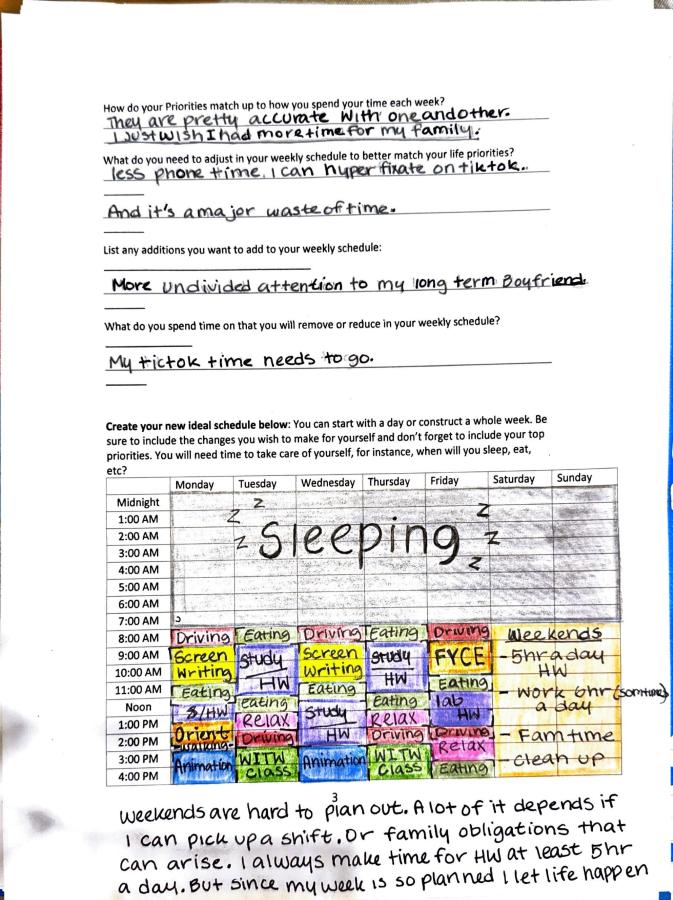 How do your Priorities match up to how you spend your time each week?
They are pretty accurate with one andother.
I Just wish I had more time for my family.
What do you need to adjust in your weekly schedule to better match your life priorities?
less phone time, I can hyper fixate on tiktok..
And it's a major waste of time.
List any additions you want to add to your weekly schedule:
More undivided attention to my long term Boyfriend
What do you spend time on that you will remove or reduce in your weekly schedule?
My tictok time needs to go.
Create your new ideal schedule below: You can start with a day or construct a whole week. Be
sure to include the changes you wish to make for yourself and don't forget to include your top
priorities. You will need time to take care of yourself, for instance, when will you sleep, eat,
etc?
Monday Tuesday Wednesday Thursday Friday Saturday Sunday
Midnight
z
1:00 AM z z
2:00 AM sleeping z
3:00 AM z
4:00 AM z
5:00 AM
6:00 AM
7:00 AM
8:00 AM Driving Eating Driving Eating Driving Weekends
9:00 AM Screen Study Screen Study FYCE - 5hr a day
10:00 AM Writing HW Writing HW HW
11:00 AM Eating Eating Eating - Work 6hr (somtime)
Noon S/HW eating Study Eating lab a day
1:00 PM Orient Relax HW Relax HW
2:00 PM Driving Driving Driving - Fam time
3:00 PM Animation WITW Animation WITW Relax - Clean up
4:00 PM Class Class Eating
3
Weekends are hard to plan out. A lot of it depends if
I can pick up a shift. Or family obligations that
can arise. I always make time for HW at least 5hr
a day. But since my week is so planned I let life happen